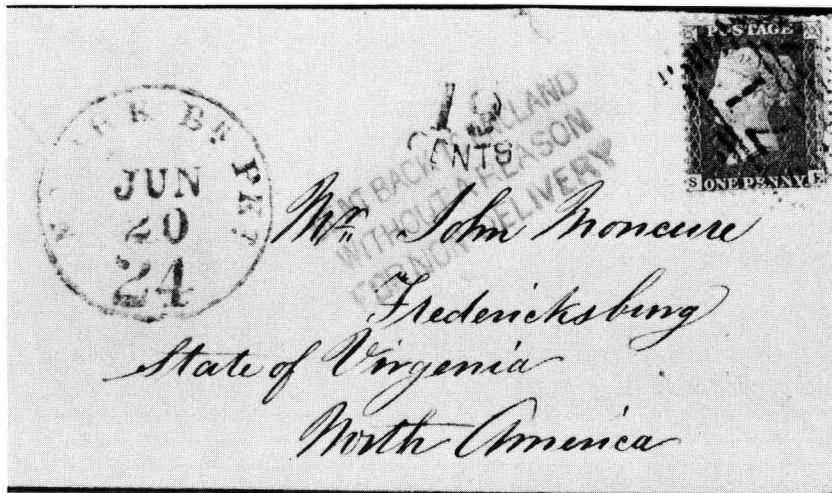 POSTAGE
S ONE PENNY E
JUN
20
24
19
CENTS
SENT BACK TO ENGLAND
WITHOUT A REASON
FOR NON-DELIVERY
Mr. John Moncure
Fredericksburg
State of Virgenia
North America